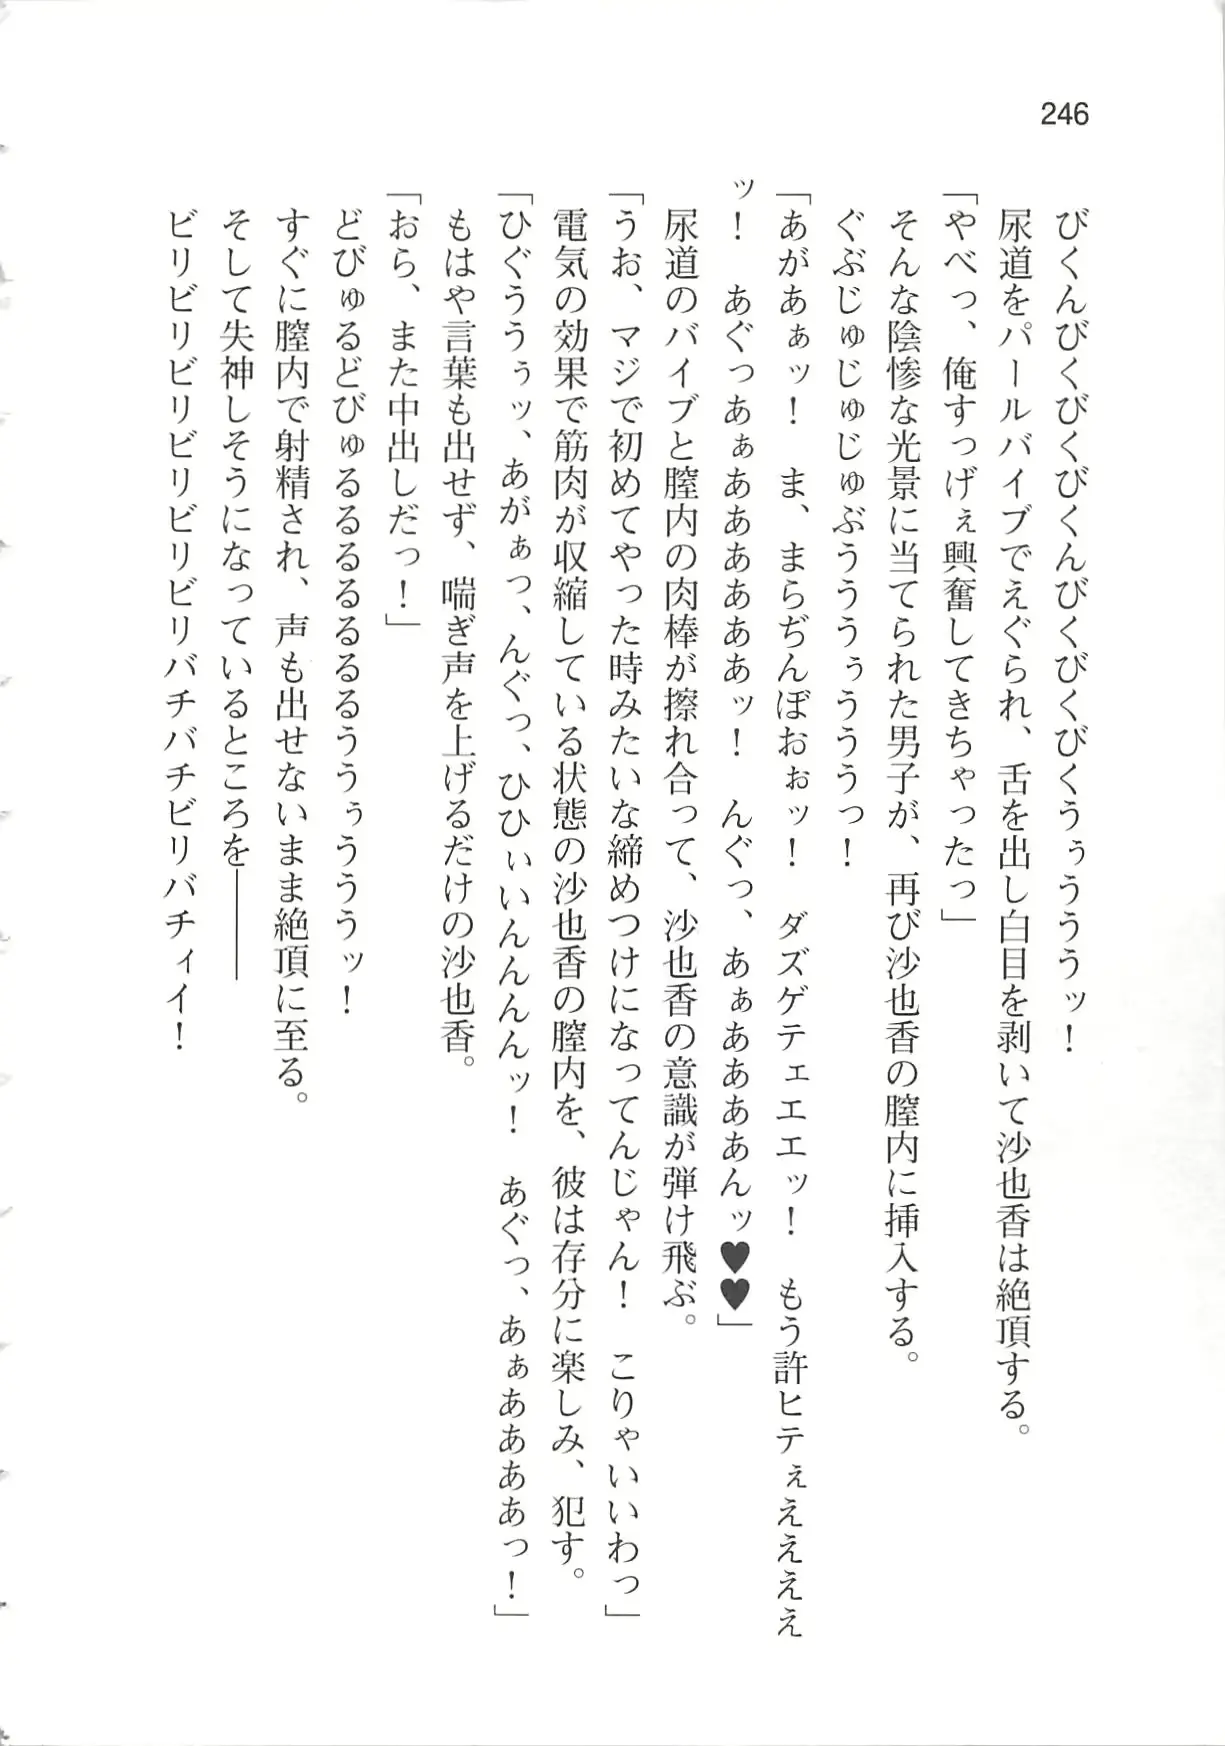 246
びくんびくびくびくんびくびくびくうぅうううッ！
尿道をパールバイブでえぐられ、舌を出し白目を剥いて沙也香は絶頂する。
「やべっ、俺すっげぇ興奮してきちゃったっ」
そんな陰惨な光景に当てられた男子が、再び沙也香の膣内に挿入する。
ぐぶじゅじゅじゅぶうううぅうううっ！
「あがあぁッ！　ま、まらぢんぼおぉッ！　ダズゲテェエエッ！　もう許ヒテぇええええ
ッ！　あぐっあぁああああああッ！　んぐっ、あぁああああんッ♥♥」
尿道のバイブと膣内の肉棒が擦れ合って、沙也香の意識が弾け飛ぶ。
「うお、マジで初めてやった時みたいな締めつけになってんじゃん！　こりゃいいわっ」
電気の効果で筋肉が収縮している状態の沙也香の膣内を、彼は存分に楽しみ、犯す。
「ひぐううぅッ、あがぁっ、んぐっ、ひひぃいんんんんッ！　あぐっ、あぁああああっ！」
もはや言葉も出せず、喘ぎ声を上げるだけの沙也香。
「おら、また中出しだっ！」
どびゅるどびゅるるるるるるううぅうううッ！
すぐに膣内で射精され、声も出せないまま絶頂に至る。
そして失神しそうになっているところを―――
ビリビリビリビリビリビリビリバチバチビリバチィイ！